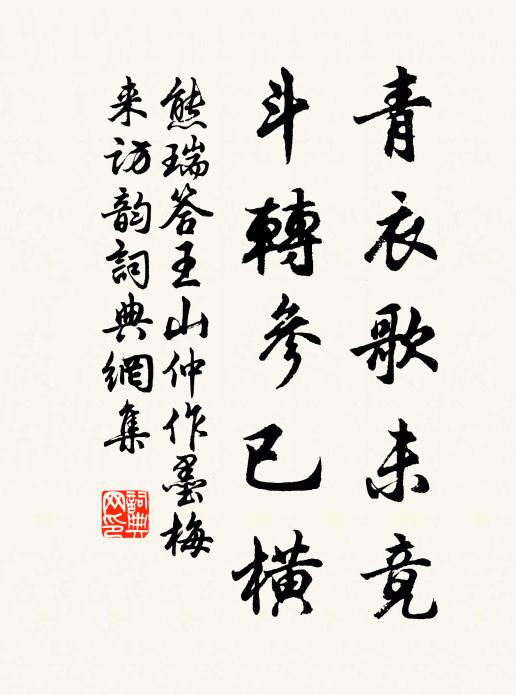 青衣歌未竟
斗轉參已橫
熊瑞答王山仲作墨梅
来访韵詞典網集
詞典
网印